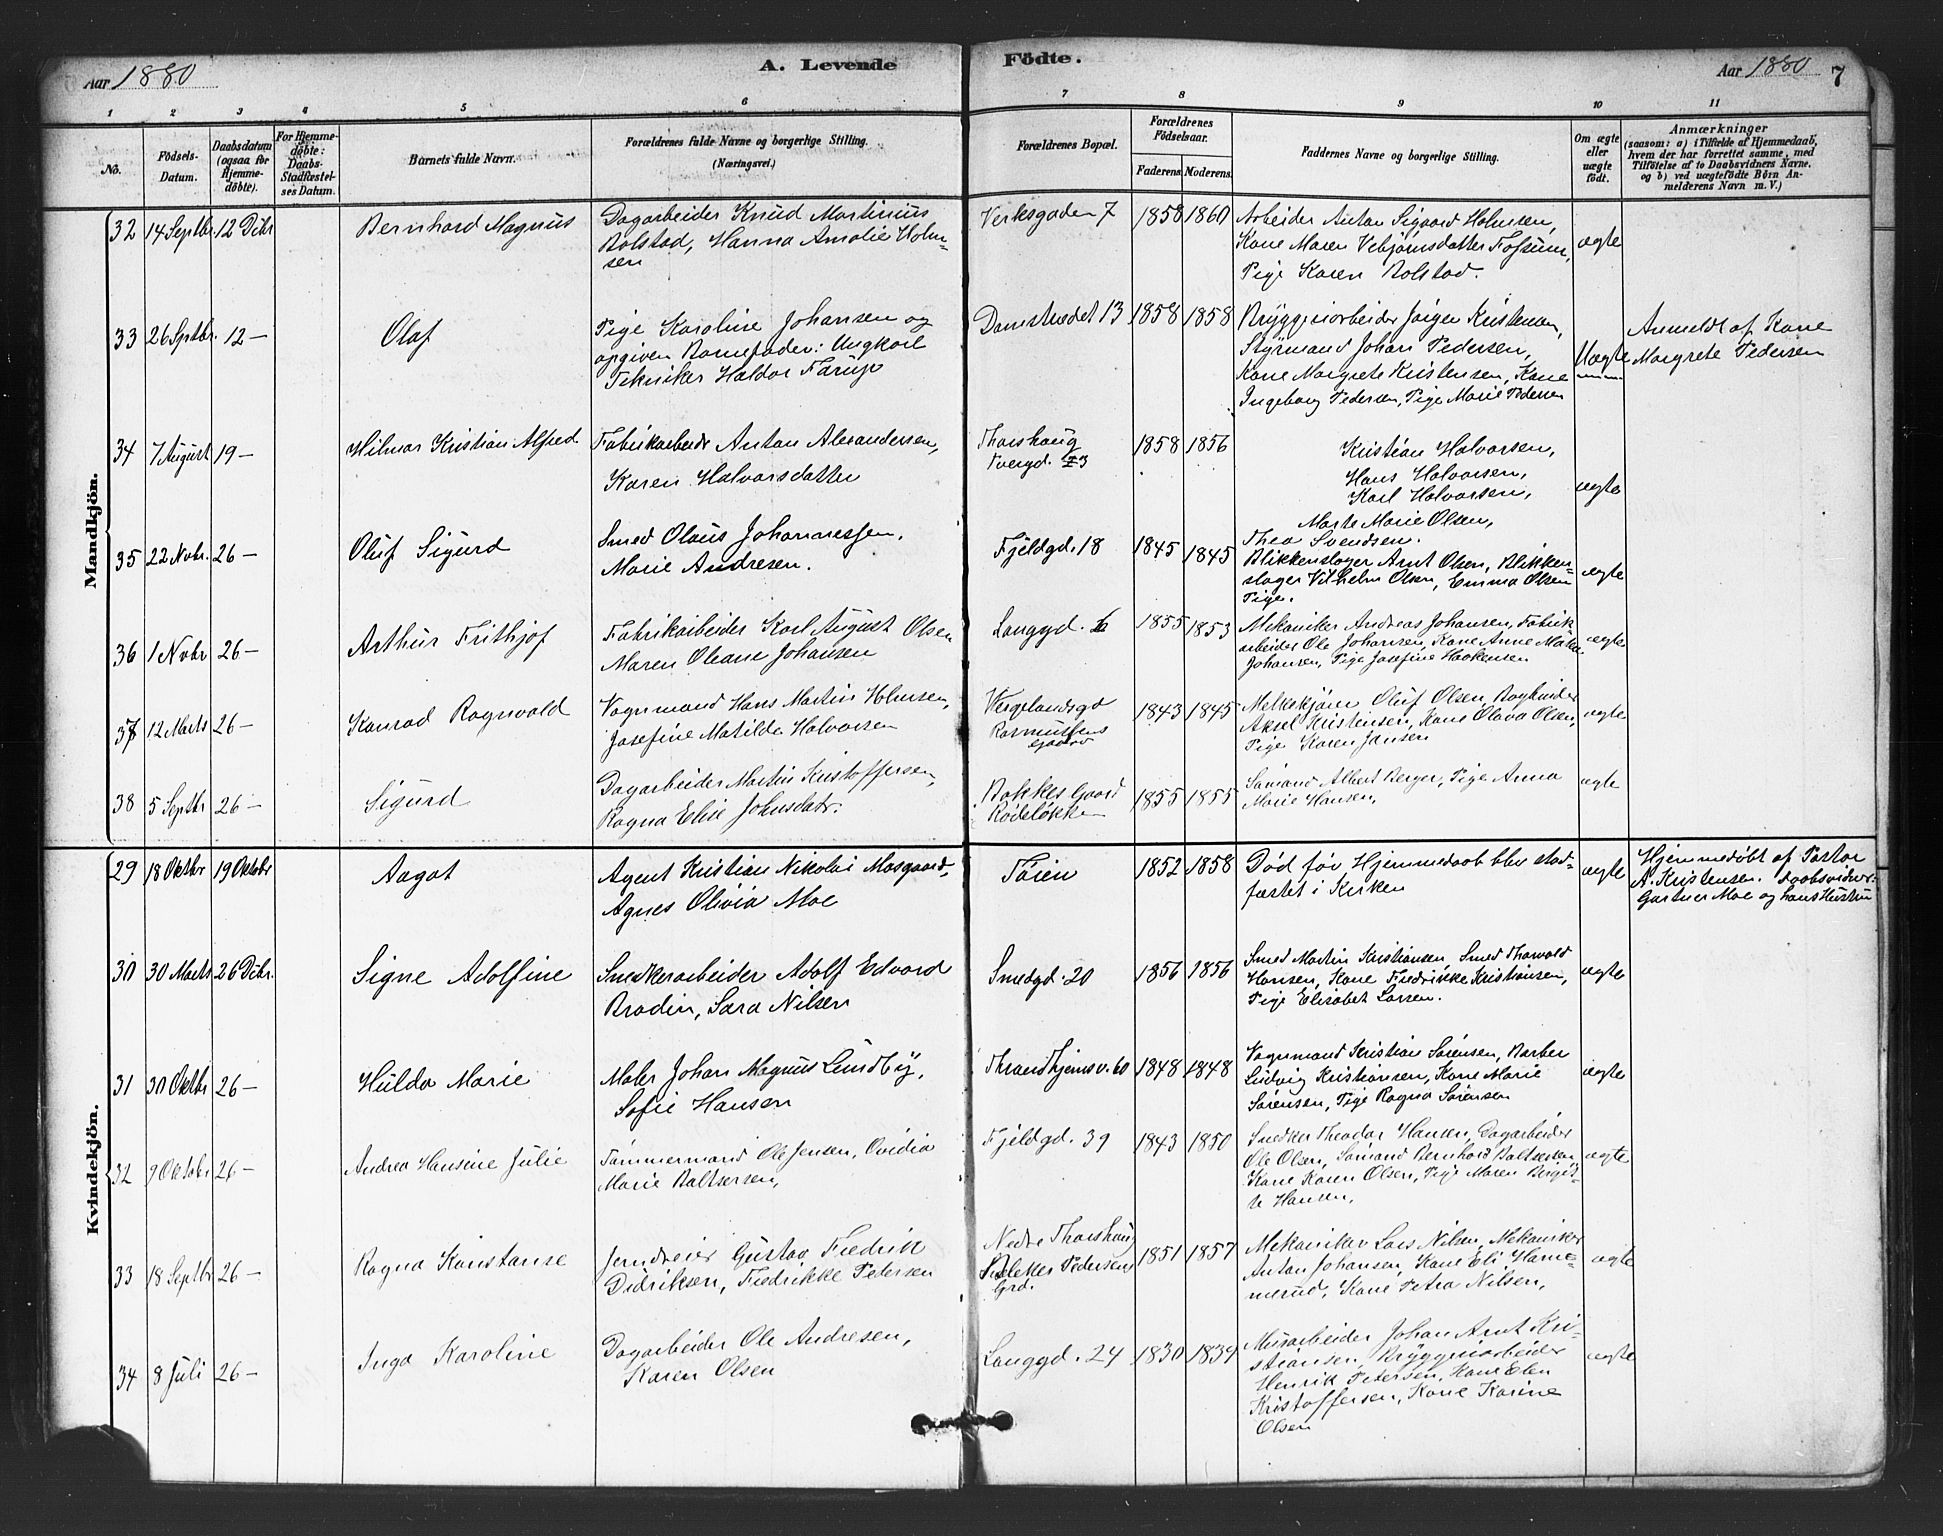 Aar 1880
A. Levende
Födte.
Aar 1880
7
1 2 3 4 5 6 7 8 9 10 11
No.
Födsels-Datum.
Daabsdatum (ogsaa for Hjemmedöbte).
For Hjemmedöbte: Daabs-Stadfæstelses Datum.
Barnets fulde Navn.
Forældrenes fulde Navne og borgerlige Stilling. (Næringsvei.)
Forældrenes Bopæl.
Forældrenes Födselsaar.
Faderens Moderens
Faddernes Navne og borgerlige Stilling.
Om ægte eller uægte födt.
Anmærkninger
(saasom: a) i Tilfælde af Hjemmedaab,
hvem der har forrettet samme, med
Tilföielse af to Daabsvidners Navne.
og b) ved uægtefödte Börn An-
melderens Navn m. V.)
Mandkjön.
32 14 Septbr 12 Dcbr
Bernhard Magnus
Dagarbeider Knud Martinius
Bolstad, Hanna Amalie Holm-
sen
Verksgaden 7
1858 1860
Arbeider Anton Sigvard Holmsen,
Kone Maren Vebjørnsdatter Fossum,
Pige Karen Bolstad.
ægte
33 26 Septbr. 12 —
Olaf
Pige Karoline Johansen og
opgiven Barnefader: Ungkarl
Tekniker Haldor Farup
Damstrædet 13
1858 1858
Bryggeriarbeider Jørgen Kristensen,
Styrmand Johan Pedersen,
Kone Margrete Kristensen, Kone
Ingeborg Pedersen, Pige Marie Pedersen
Uægte
Anmeldt af Kone
Margrete Pedersen
34 7 August 19 —
Hilmar Kristian Alfred
Fabrikarbeider Anton Alexandersen,
Karen Halvorsdatter
Thorshaug
Tvergd. 3
1858 1856
Kristian Halvorsen,
Hans Halvorsen,
Karl Halvorsen,
Marte Marie Olsen,
Thea Svendsen.
ægte
35 22 Nvbr. 26 —
Oluf Sigurd
Smed Olaus Johannessen,
Marie Andresen.
Fjeldgd. 18
1845 1845
Blikkenslager Arnt Olsen, Blikken-
slager Vilhelm Olsen, Emma Olsen
Pige.
ægte
36 1 Nvbr 26 —
Arthur Frithjof
Fabrikarbeider Karl August Olsen
Maren Oleane Johansen
Langgd. 6
1855 1853
Mekaniker Andreas Johansen, Fabrik
arbeider Ole Johansen, Kone Anne
Johansen, Pige Josefine Haakensen
ægte
37 12 Marts 26 —
Konrad Ragnvald
Vognmand Hans Martin Holmsen,
Josefine Matilde Halvorsen
Vergelandsgd
Rasmussens
Gaard
1843 1845
Melkekjører Oluf Olsen, Bogbinder
Aksel Kristensen, Kone Olava Olsen,
Pige Karen Jansen
ægte
38 5 Septbr 26 —
Sigurd
Dagarbeider Martin Kristoffersen,
Ragna Elise Johnsdatr.
Bakkes Gaard
Rødeløkken
1855 1855
Sømand Albert Berger, Pige Anna
Marie Hansen,
ægte
Kvindekjön.
29 18 Oktbr 19 Oktobr
Aagot
Agent Kristian Nikolai Mosgaard,
Agnes Olivia Moe
Tøien
1852 1858
Død før Hjemmedaab blev stad-
fæstet i Kirken
ægte
Hjemmedøbt af Pastor
A. Kristensen. Daabsvidner:
Gartner Moe og hans Hustru
30 30 Marts 26 Dcbr.
Signe Adolfine
Snedkerarbeider Adolf Edvard
Brodin, Sara Nilsen
Smedgd. 20
1856 1856
Smed Martin Kristiansen, Smed Thorvald
Hansen, Kone Fredrikke Kristiansen,
Pige Elisabet Larsen.
ægte
31 30 Oktbr 26 —
Hulda Marie
Maler Johan Magnus Lundby,
Sofie Hansen
Thrandhjemsv. 60
1848 1848
Vognmand Kristian Sørensen, Barber
Ludvig Kristiansen, Kone Marie
Sørensen, Pige Ragna Sørensen
ægte
32 9 Oktobr 26 —
Andrea Hansine Julie
Tømmermand Ole Jensen, Ovidia
Marie Baltsersen,
Fjeldgd. 39
1843 1850
Snedker Theodor Hansen, Dagarbeider
Ole Olsen, Sømand Bernhard Baltsersen
Kone Karen Olsen, Pige Maren Birgit-
te Hansen,
ægte
33 18 Septbr 26 —
Ragna Konstanse
Jerndreier Gustav Fredrik
Didriksen, Fredrikke Petersen
Nedre Thorshaug
Snekker Pedersens
Grd.
1851 1857
Mekaniker Lars Nilsen, Mekaniker
Anton Johansen, Kone Eli Hame-
nerud, Kone Petra Nilsen,
ægte
34 8 Juli 26 —
Inga Karoline
Dagarbeider Ole Andresen,
Karen Olsen
Langgd. 24
1830 1839
Murarbeider Johan Arnt Kri-
stiansen, Bryggeriarbeider
Henrik Petersen, Kone Elen
Kristoffersen, Kone Karine
Olsen
ægte